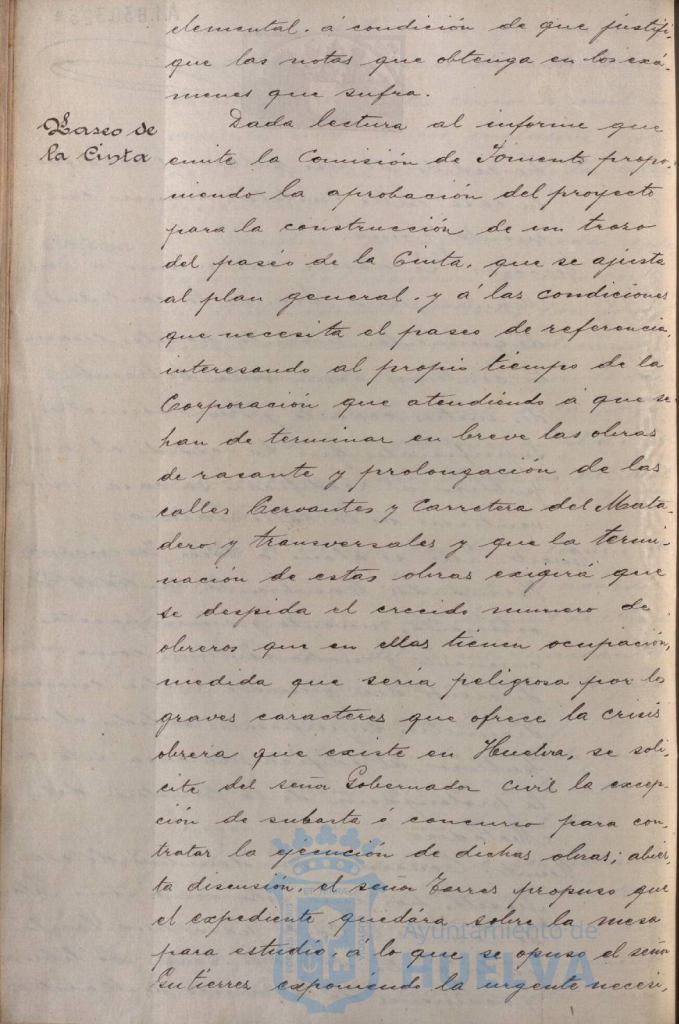 elemental, á condición de que justifi,
que las notas que obtenga en los exá,
menes que sufra.
Paseo de
la Cinta
Dada lectura al informe que
emite la Comisión de Fomento propo,
niendo la aprobación del proyecto
para la construcción de un trozo
del paseo de la Cinta, que se ajusta
al plan general, y á las condiciones
que necesita el paseo de referencia,
interesando al propio tiempo de la
Corporación que atendiendo á que se
han de terminar en breve las obras
de rasante y prolongación de las
calles Cervantes y Carretera del Mata,
dero y transversales y que la termi,
nación de estas obras exigirá que
se despida el crecido numero de
obreros que en ellas tienen ocupación,
medida que sería peligrosa por los
graves caracteres que ofrece la crisis
obrera que existe en Huelva, se soli,
cite del señor Gobernador civil la excep,
ción de subasta ó concurso para con,
tratar la ejecución de dichas obras; abier,
ta discusión, el señor Torres propuso que
el expediente quedára sobre la mesa
para estudio, á lo que se opuso el señor
Gutierrez exponiendo la urgente neceri,
Ayuntamiento de
HUELVA